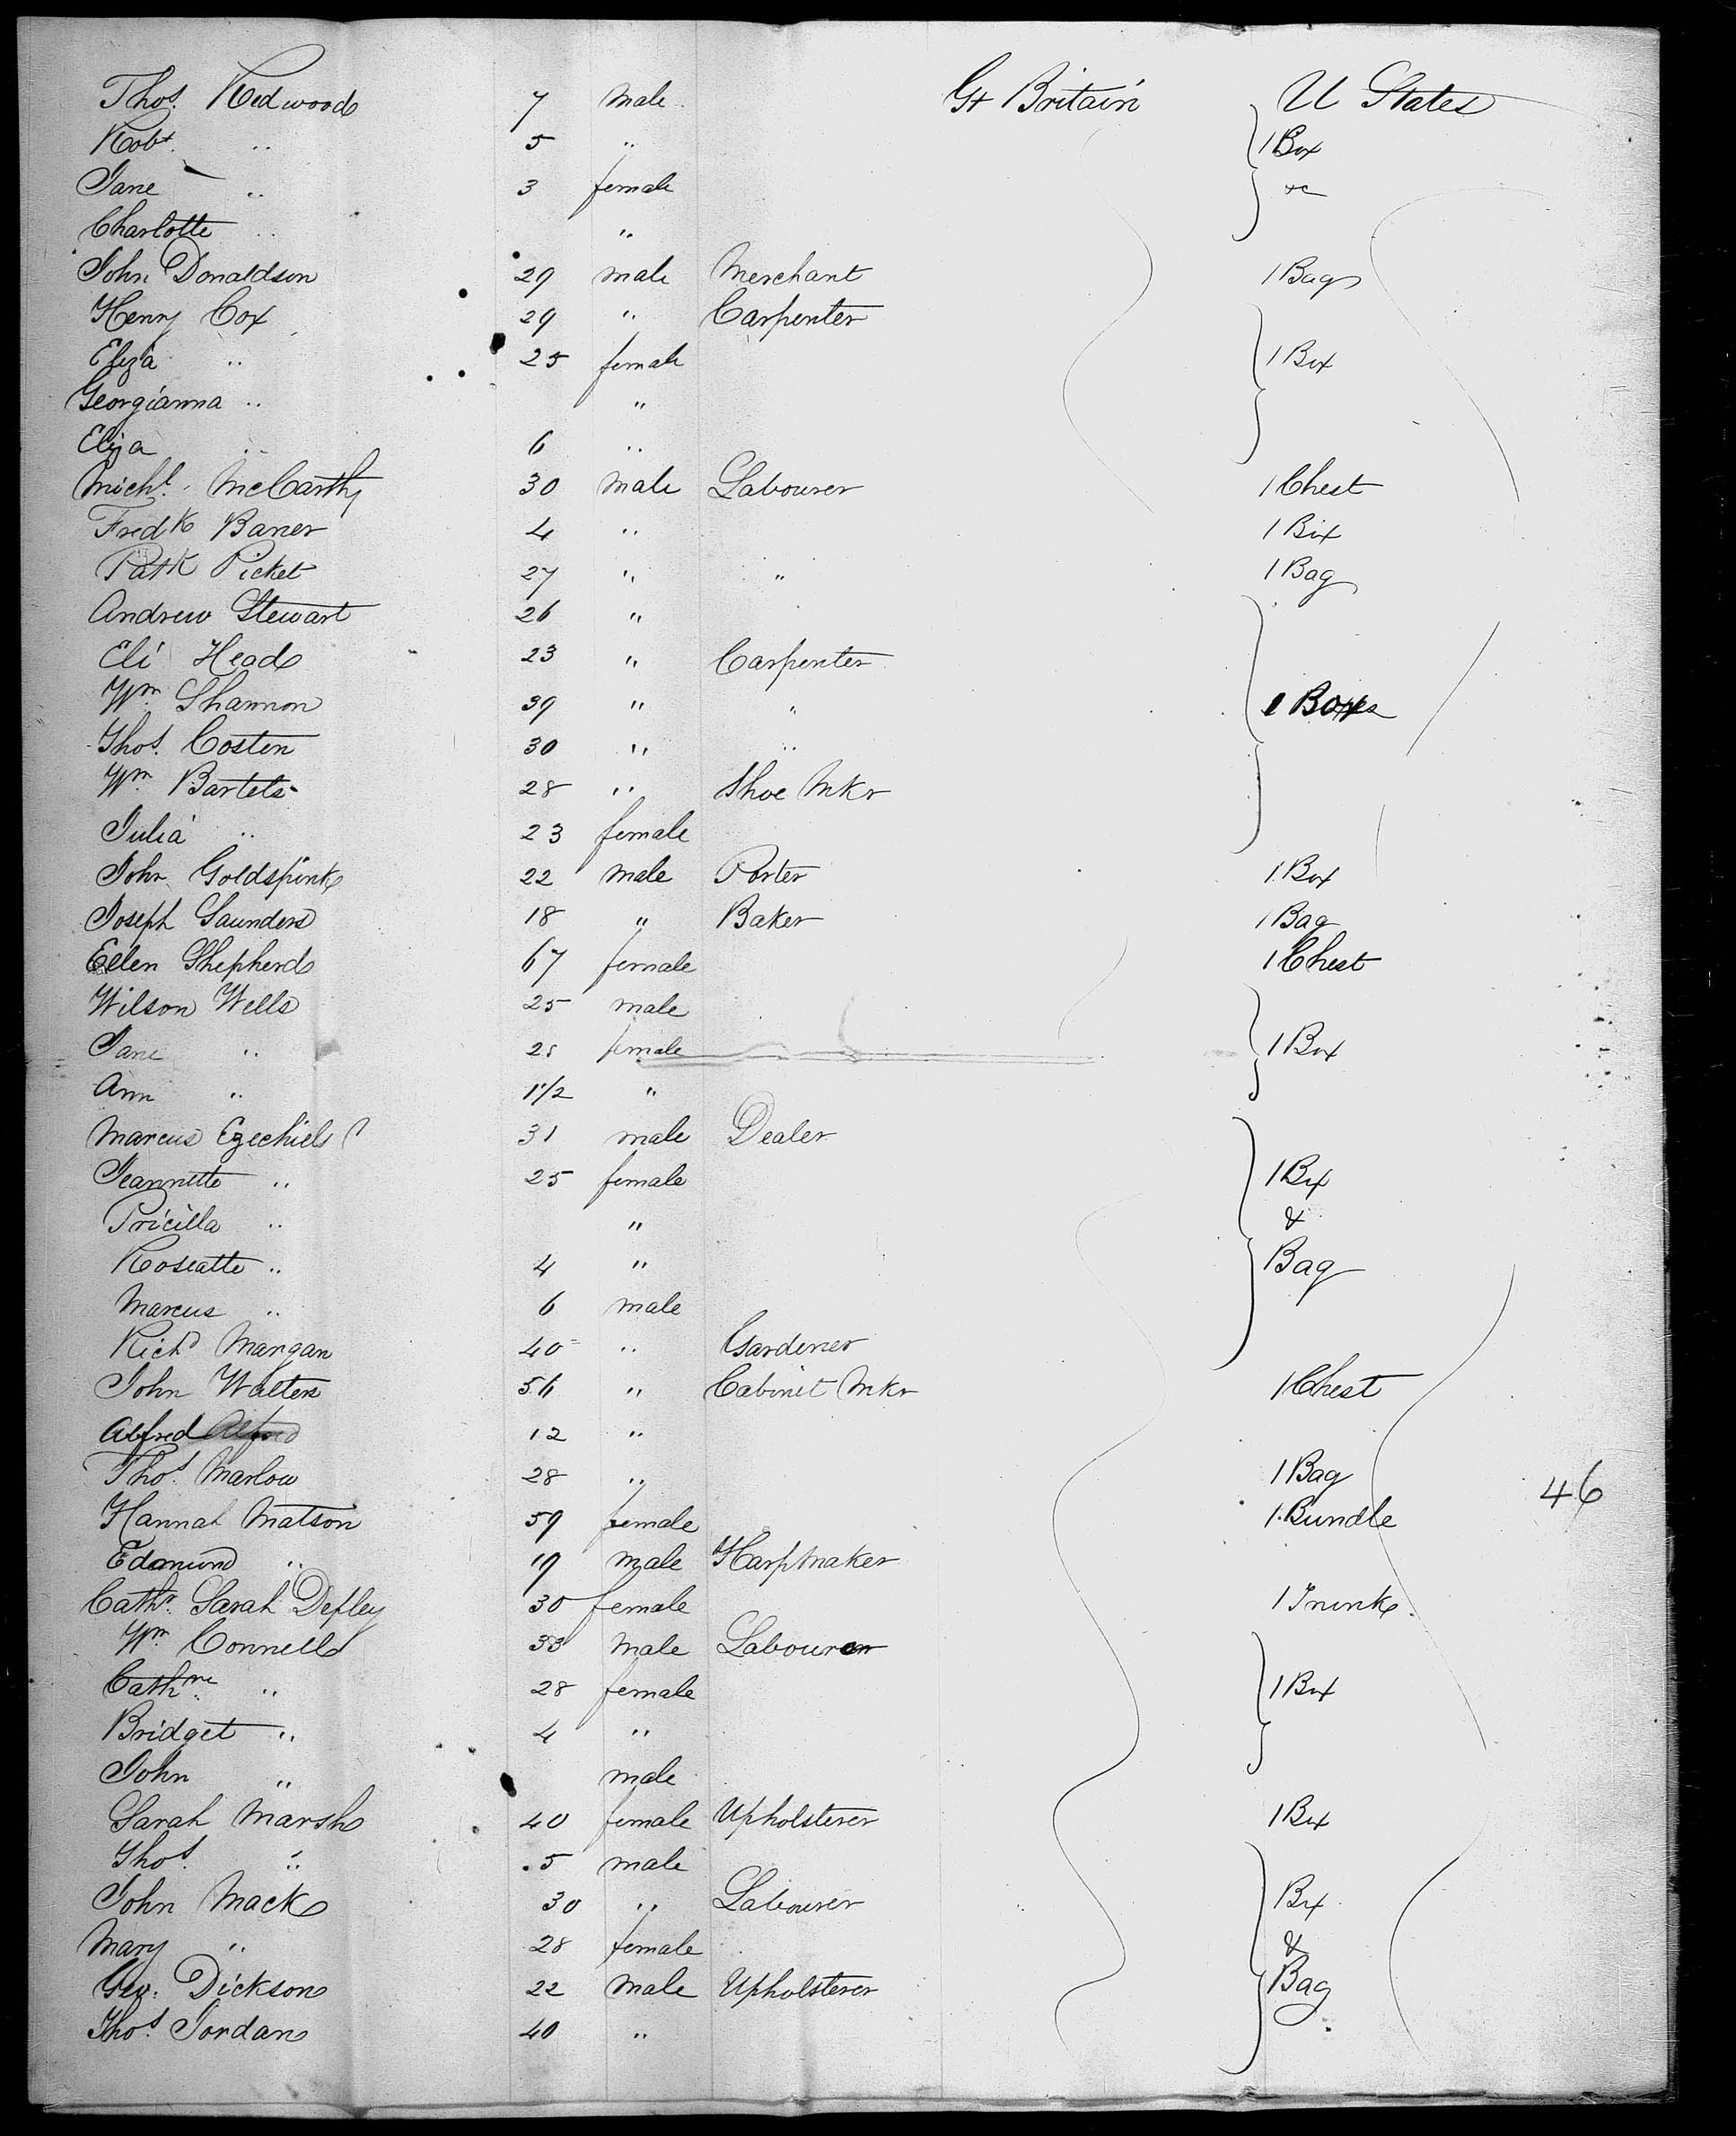 Thos. Redwood 7 male Gt Britain U States
Robt. " 5 " 1 Box
Jane " 3 female &c
Charlotte " "
John Donaldson 29 male Merchant 1 Bag
Henry Cox 29 " Carpenter
Eliza " 25 female 1 Box
Georgianna " "
Eliza " 6 "
Michl. McCarthy 30 male Labourer 1 Chest
Fredk Baner 4 " 1 Box
Patk Picket 27 " " 1 Bag
Andrew Stewart 26 "
Eli Head 23 " Carpenter
Wm. Shannon 39 " " Boxes
Thos. Costen 30 " "
Wm. Bartels 28 " Shoe Mkr
Julia " 23 female
John Goldspink 22 male Porter 1 Box
Joseph Saunders 18 " Baker 1 Bag
Ellen Shepherd 67 female 1 Chest
Wilson Wells 25 male
Jane " 25 female 1 Box
Ann " 1 1/2 "
Marcus Ezechiels 31 male Dealer
Jeannette " 25 female 1 Box
Pricilla " " &
Roseatte " 4 " Bag
Marcus " 6 male
Richd Mangan 40 " Gardener
John Walters 56 " Cabinit Mkr 1 Chest
Alfred Alfred 12 "
Thos. Marlow 28 " 1 Bag
46
Hannah Matson 59 female 1 Bundle
Edmund " 19 male Harpmaker
Cathn. Sarah Depley 30 female 1 Trunk
Wm. Connell 33 male Labourer
Cathne. " 28 female 1 Box
Bridget " 4 "
John " male
Sarah Marsh 40 female Upholsterer 1 Box
Thos. " 5 male
John Mack 30 " Labourer Box
Mary " 28 female &
Geo. Dickson 22 male Upholsterer Bag
Thos. Jordan 40 "